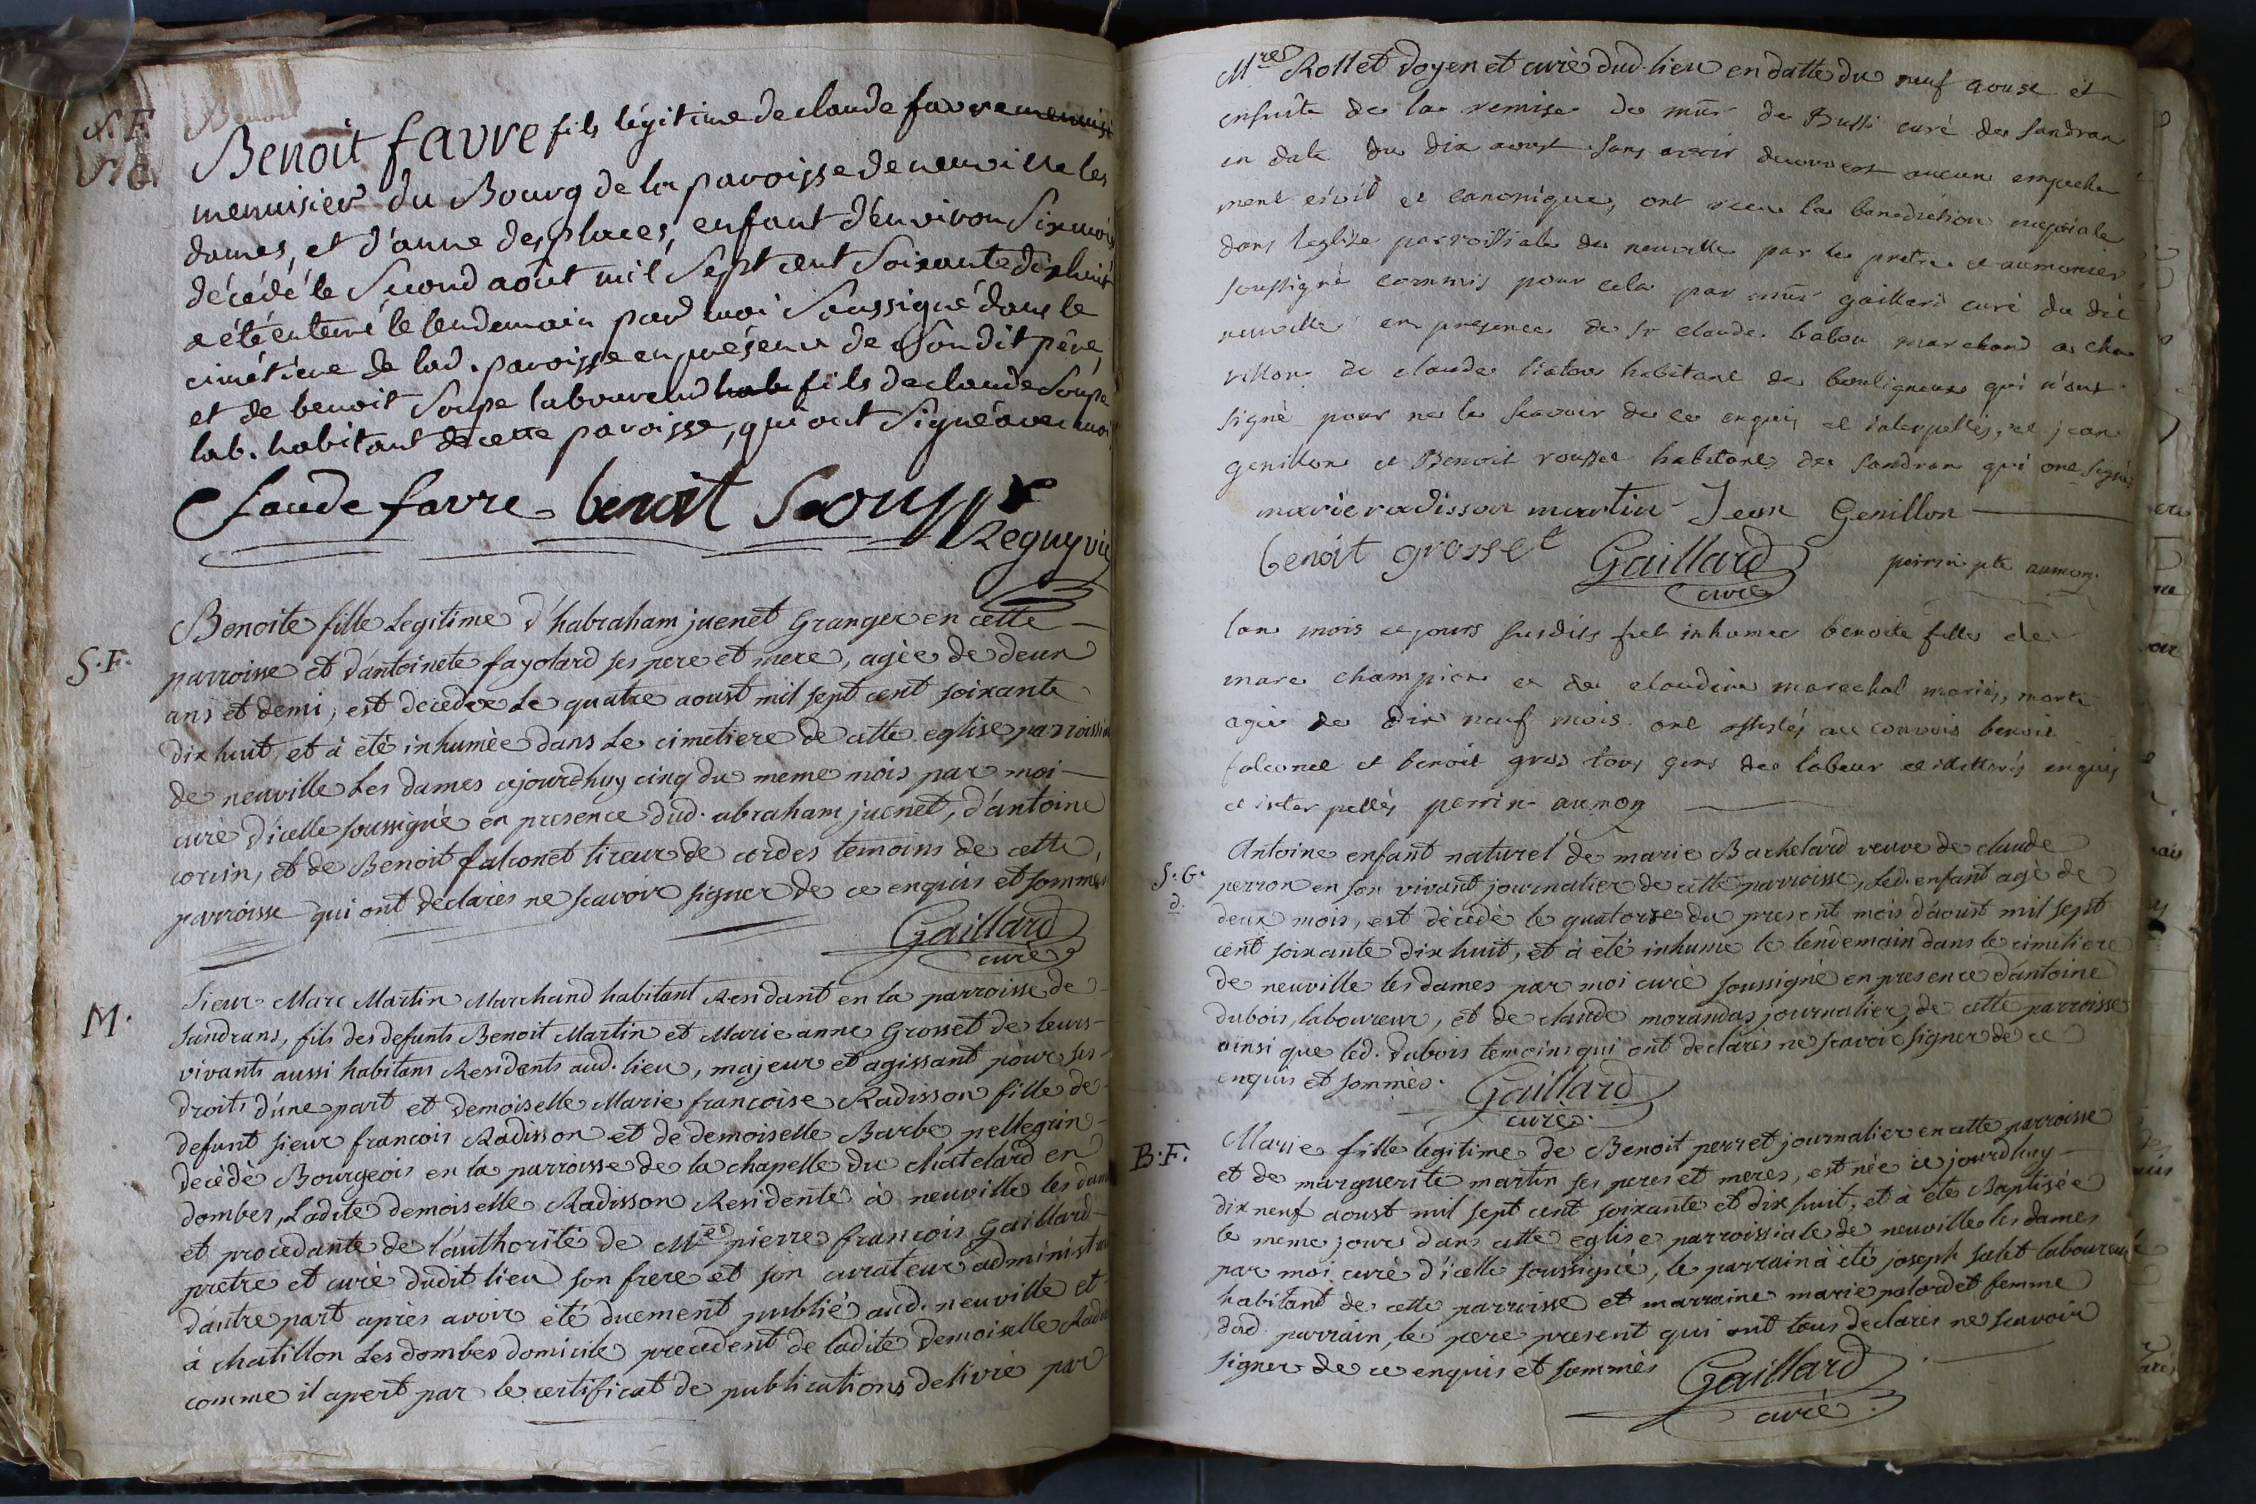 Benoit favre fils légitime de claude favre
menuisier du Bourg de la paroisse de neuville les
dames, et d'anne desplaces, enfant d'environ Six mois
décédé le Second aout mil Sept cent Soixante dixhuit
a été enterré le lendemain par moi Soussigné dans le
cimétiere de lad. paroisse en présence de Son dit pére,
et de benoit Soupe laboureur fils de claude Soupe
lab. habitant de cette paroisse, qui ont Signé avec moi
Claude favre benoit Soupe
Reguy vic
S.F.
Benoite fille Legitime d'habraham juenet Granger en cette
parroisse et d'antoinete fayolard ses pere et mere, agèe de deux
ans et demi, est decedèe Le quatre aoust mil sept cent soixante
dix huit, et à étè inhumèe dans Le cimetiere de cette eglise parroissial
de neuville Les dames cejourdhuy cinq du meme mois par moi
curè d'icelle soussignè en presence dud. abraham juenet, d'antoine
corvin, et de Benoit falconet tireur de cordes temoins de cette
parroisse qui ont declarès ne scavoir signer de ce enquis et sommes
Gaillard
curè
M.
Sieur Marc Martin Marchand habitant Residant en la parroisse de
Sandrans, fils des defunts Benoit Martin et Marie anne Grosset de leurs
vivants aussi habitans Residents aud. lieu, majeur et agissant pour ses
droits d'une part et demoiselle Marie francoise Radisson fille de
defunt sieur francois Radisson et de demoiselle Barbe pellegrin
decèdè Bourgeois en la parroisse de la chapelle du chatelard en
dombes, Ladite demoiselle Radisson Residente à neuville les dames
et procedante de l'authorité de Mre pierre francois Gaillard
pretre et curè dudit lieu son frere et son curateur administ
d'autre part après avoir étè duement publiè aud. neuville et
à chatillon Les dombes domicile precedent de ladite demoiselle Radi
comme il apert par le certificat de publications delivrè par
Mre Rollet doyen et curè dud. lieu en datte du neuf aoust et
ensuite de la remise de mr de Bussi curé de Sandran
en date du dix aoust sans avoir decouvert aucun empeche
ment civil et canonique, ont recu la benediction nuptiale
dans leglise parroissiale de neuville par le pretre et aumonier
soussigné commis pour cela par mr gaillard curé du dit
neuville en presence de sr claude babon marchand a cha
tillon de claude habitant de bouligneux qui n'ont
signé pour ne le scavoir de ce enquis et interpellés, et jean
genillon et Benoit rousset habitans de sandran qui ont signé
marie radisson martin Jean Genillon
benoit grosset Gaillard perrin ptre aumon.
curè
lan mois et jours susdits fut inhumée benoite fille de
marc champion et de claudine marechal mariés, morte
agée de dix neuf mois. ont assistés au convois benoit
falconet et benoit gros tous gens de labeur et illitterés enquis
et interpellés perrin aumon
S.G.
d.
Antoine enfant naturel de marie Bachelard veuve de claude
perron en son vivant journalier de cette parroisse, Led. enfant agè de
deux mois, est dècèdè le quatorze du present mois d'aoust mil sept
cent soixante dix huit, et à étè inhumè le lendemain dans le cimetiere
de neuville les dames par moi curè soussignè en presence d'antoine
dubois, laboureur, et de claude morandas journalier, de cette parroisse
ainsi que led. dubois temoins qui ont declarès ne scavoir signer de ce
enquis et sommès.
Gaillard
curè.
B.F.
Marie fille legitime de Benoit perret journalier en cette parroisse
et de marguerite martin ses peres et meres, est nèe cejourdhuy
dix neuf aoust mil sept cent soixante et dix huit, et à étè Baptisèe
le meme jour dans cette eglise parroissiale de neuville les dames
par moi curè d'icelle soussignè, le parrain à étè joseph salet laboureur
habitant de cette parroisse et marraine marie palordet femme
dud. parrain, le pere present qui ont tous declarès ne scavoir
signer de ce enquis et sommès
Gaillard
curè.